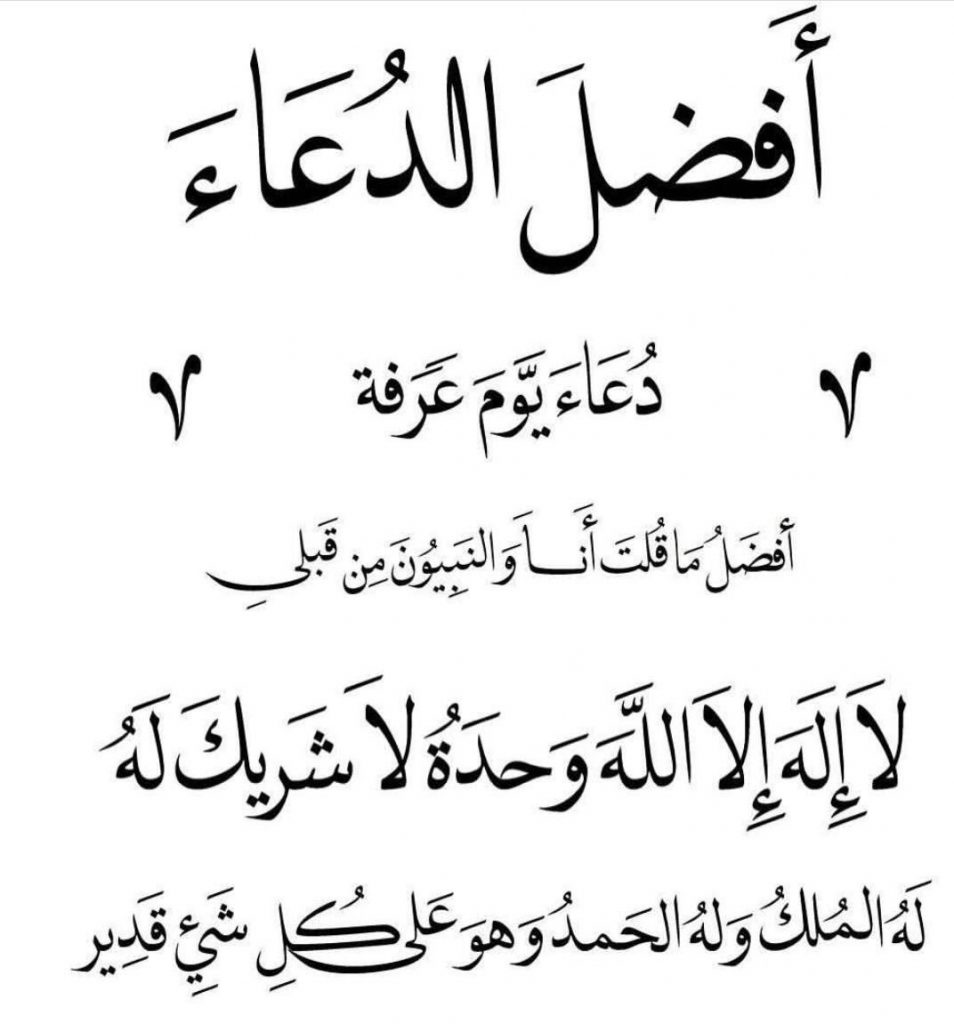 أَفضلَ الدُعَاءَ
دُعَاءَ يَّومَ عَرَفة
أفضَلُ مَا قُلتَ أَنَاَ وَالنَبِيُونَ مِن قَبلِي
لاَ إِلَهَ إِلاَ اللَّهَ وَحدَةُ لاَ شَرِيكَ لَهُ
لَهُ المُلكُ وَلهُ الحَمدُ وَهوَ عَلى كُلِ شَيِْ قَدِير